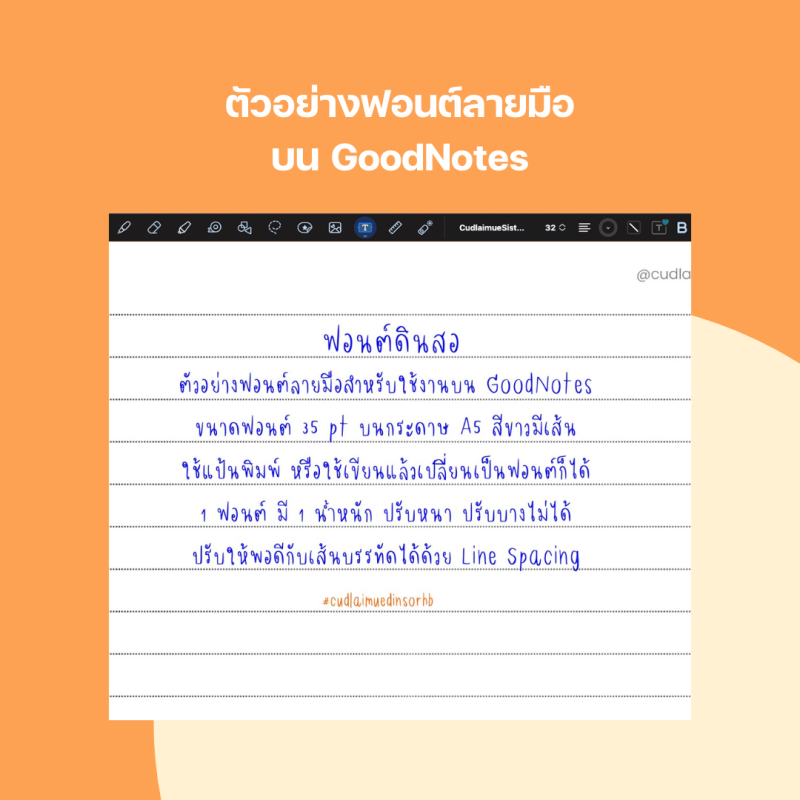 ตัวอย่างฟอนต์ลายมือ
บน GoodNotes
CudlaimueSist... 32 B
@cudla
ฟอนต์ดินสอ
ตัวอย่างฟอนต์ลายมือสำหรับใช้งานบน GoodNotes
ขนาดฟอนต์ 35 pt บนกระดาษ A5 สีขาวมีเส้น
ใช้แป้นพิมพ์ หรือใช้เขียนแล้วเปลี่ยนเป็นฟอนต์ก็ได้
1 ฟอนต์ มี 1 น้ำหนัก ปรับหนา ปรับบางไม่ได้
ปรับให้พอดีกับเส้นบรรทัดได้ด้วย Line Spacing
#cudlaimuedinsorhb